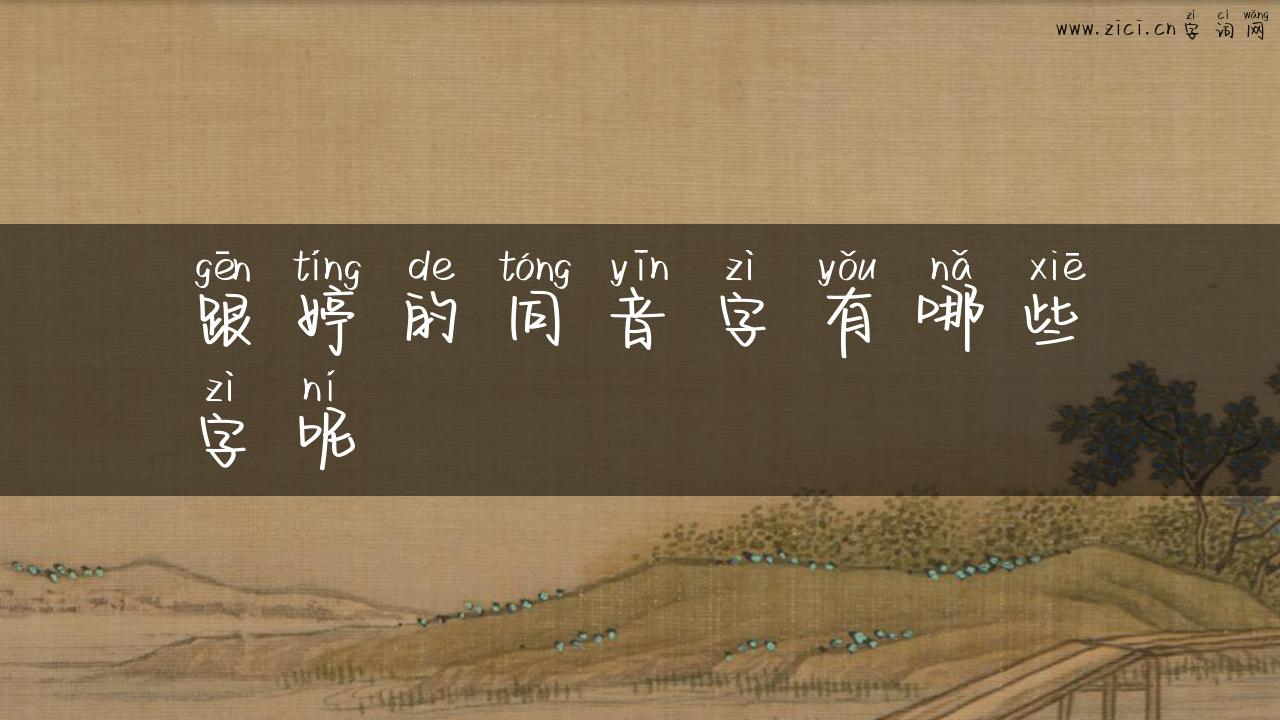 zì cí wǎng
www.zici.cn字词网
gēn tíng de tóng yīn zì yǒu nǎ xiē
跟婷的同音字有哪些
zì ní
字呢